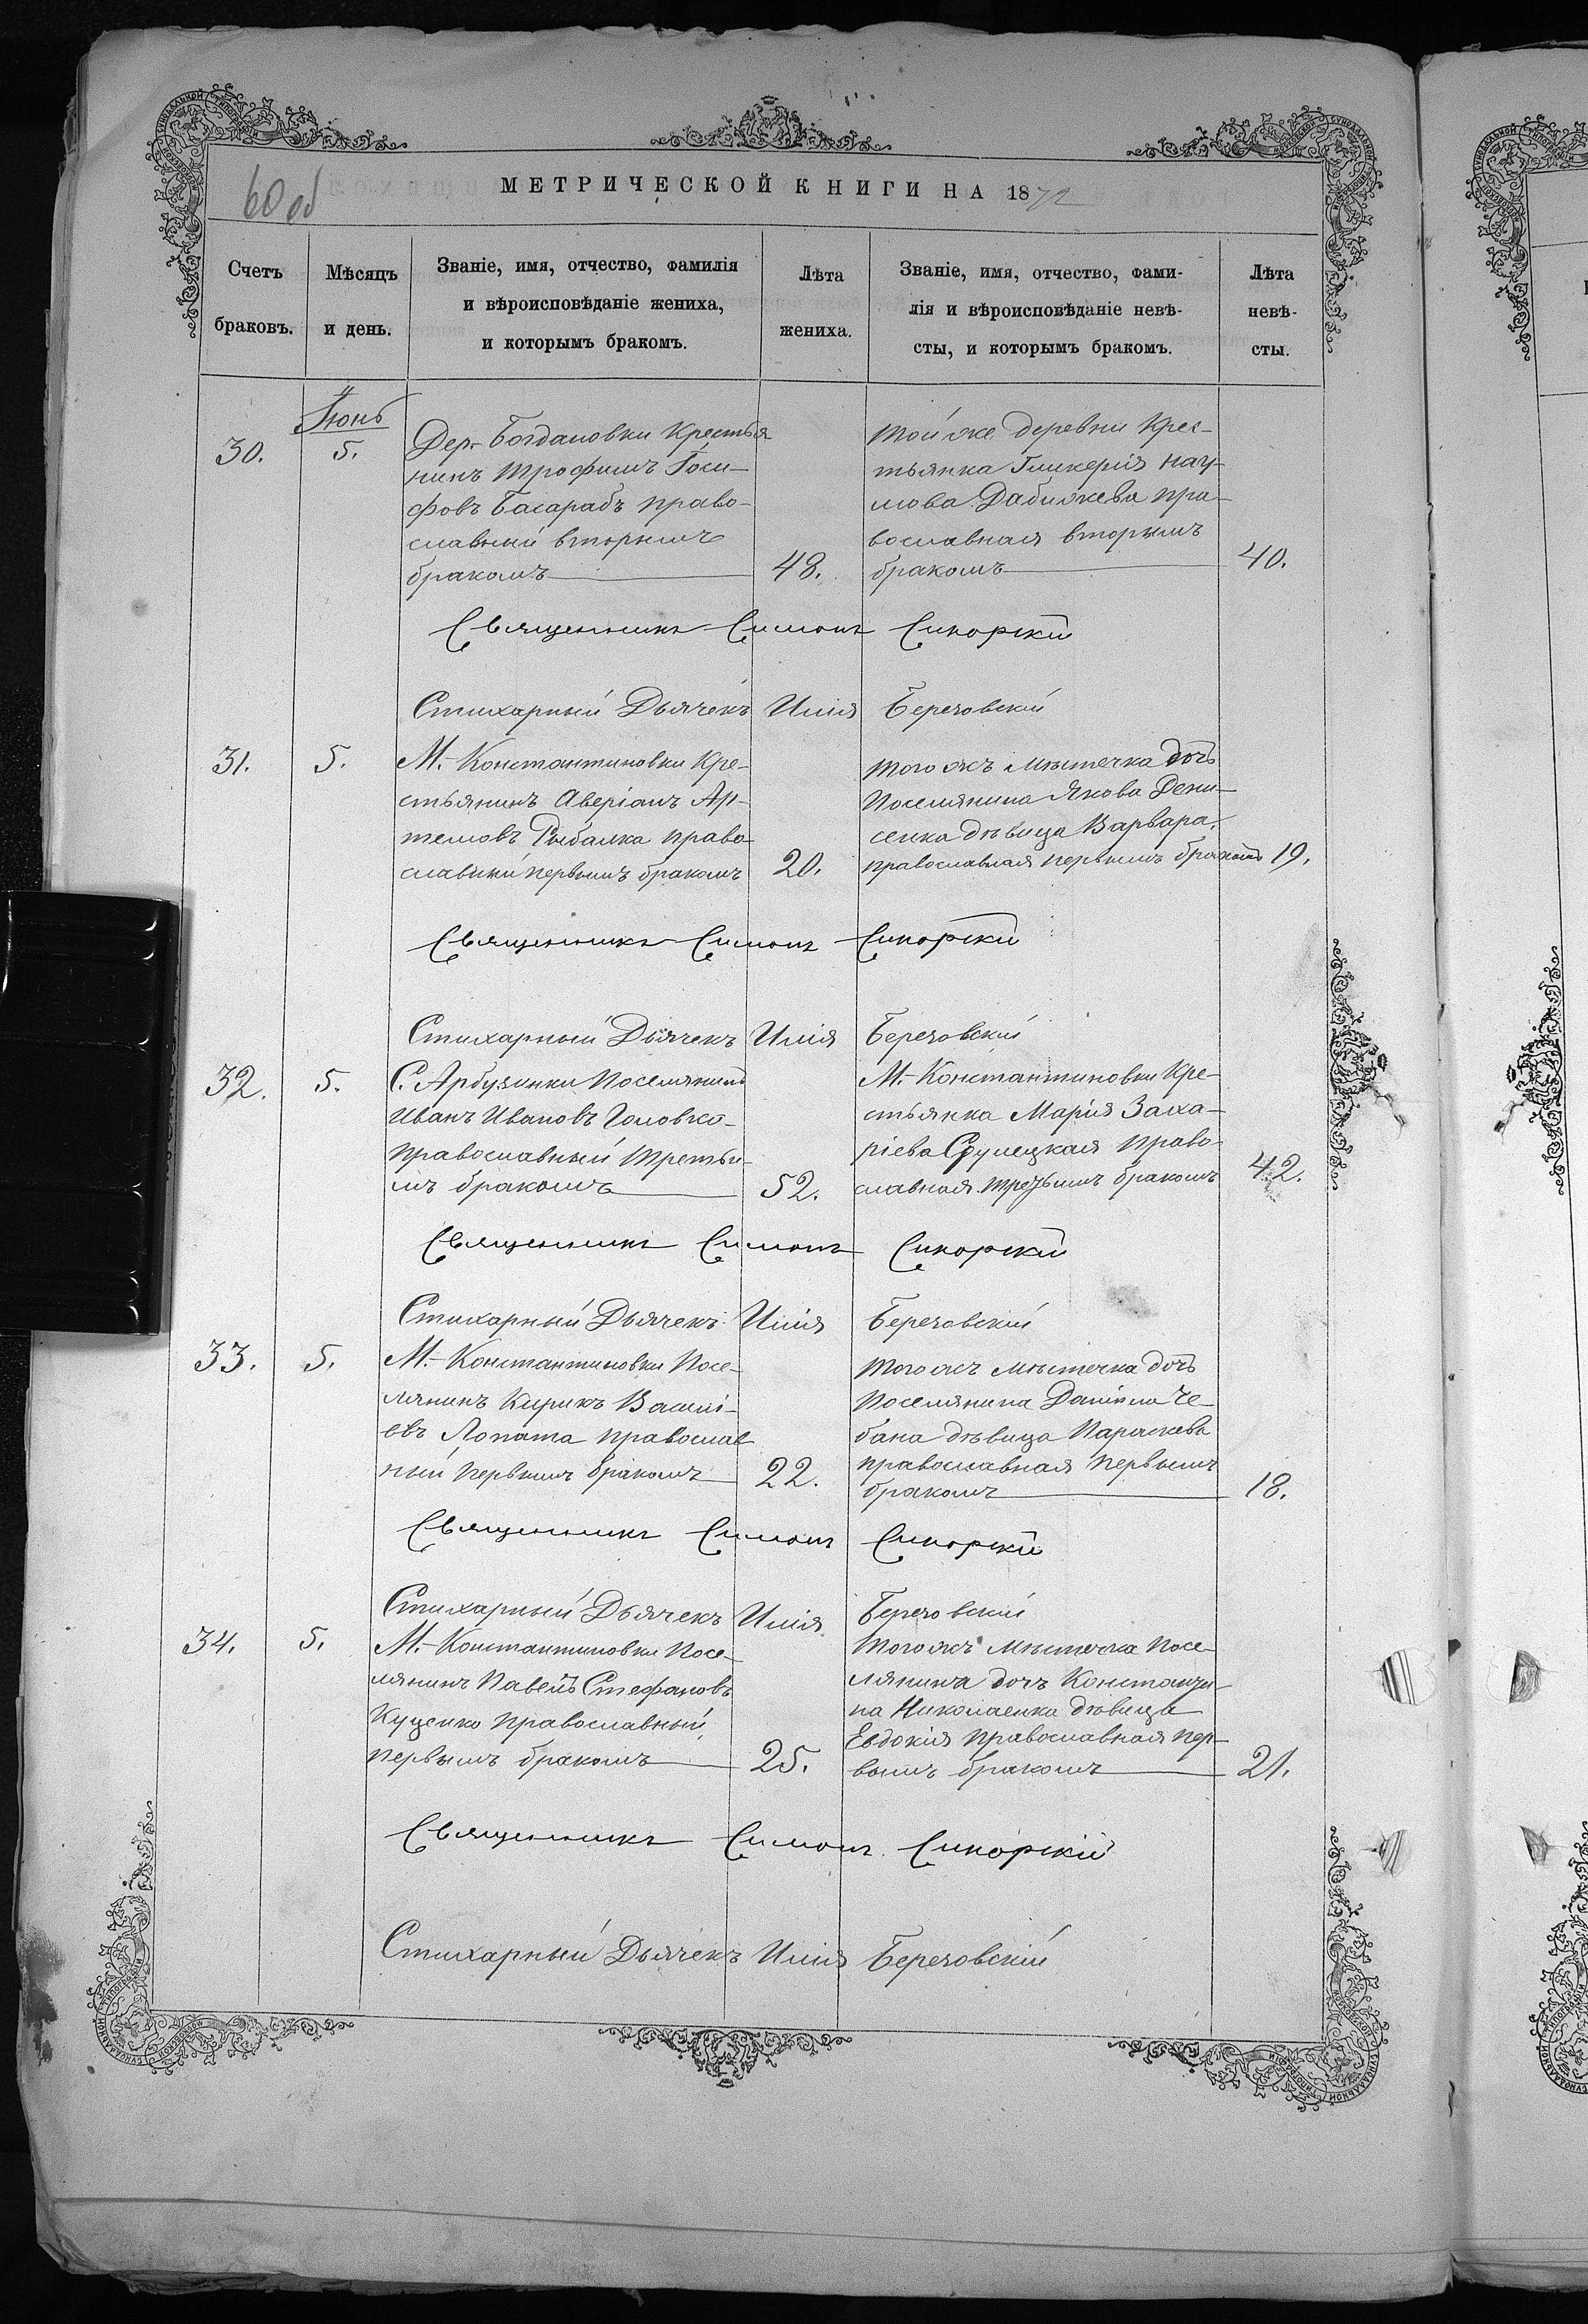 60 об
МЕТРИЧЕСКОЙ КНИГИ НА 1872
Счетъ браковъ.
Мѣсяцъ и день.
Званіе, имя, отчество, фамилія
и вѣроисповѣданіе жениха,
и которымъ бракомъ.
Лѣта жениха.
Званіе, имя, отчество, фами-
лія и вѣроисповѣданіе невѣ-
сты, и которымъ бракомъ.
Лѣта невѣ-
сты.
Іюнь
30.
5.
Дер. Богдановки Крестья
нинъ Трофимъ Іоси-
фовъ Басарабъ право-
славный вторымъ
бракомъ
48.
Той же деревни Крес-
тьянка Гликерія Нау-
мова Дабижева пра-
вославная вторымъ
бракомъ
40.
Священникъ Симонъ Сикорскій
Стихарный Дьячекъ Илія Березовскій
31.
5.
М. Константиновки Кре-
стьянинъ Аверіанъ Ар-
темовъ Рыбалка право-
славный первымъ бракомъ
20.
Того жъ мѣстечка дочь
Поселянина Якова Дени-
сенка дѣвица Варвара,
православная первымъ бракомъ
19.
Священникъ Симонъ Сикорскій
Стихарный Дьячекъ Илія Березовскій
32.
5.
С. Арбузинки Поселянинъ
Иванъ Ивановъ Головко
Православный Третьи-
мъ бракомъ
52.
М. Константиновки Кре-
стьянка Марія Заха-
ріева право-
славная третьимъ бракомъ
42.
Священникъ Симонъ Сикорскій
Стихарный Дьячекъ Илія Березовскій
33.
5.
М. Константиновки Посе-
лянинъ Кирикъ Василі-
евъ Лопата православ
ный первымъ бракомъ
22.
Того жъ мѣстечка дочь
Поселянина Даніила Че-
бана дѣвица Параскева
православная первымъ
бракомъ
18.
Священникъ Симонъ Сикорскій
Стихарный Дьячекъ Илія Березовскій
34.
5.
М. Константиновки Посе-
лянинъ Павелъ Стефановъ
Куценко православный
первымъ бракомъ
25.
Того жъ Мѣстечка Посе-
лянина дочь Константи-
на Николаенка дѣвица
Евдокія православная пер-
вымъ бракомъ
21.
Священникъ Симонъ Сикорскій
Стихарный Дьячекъ Илія Березовскій